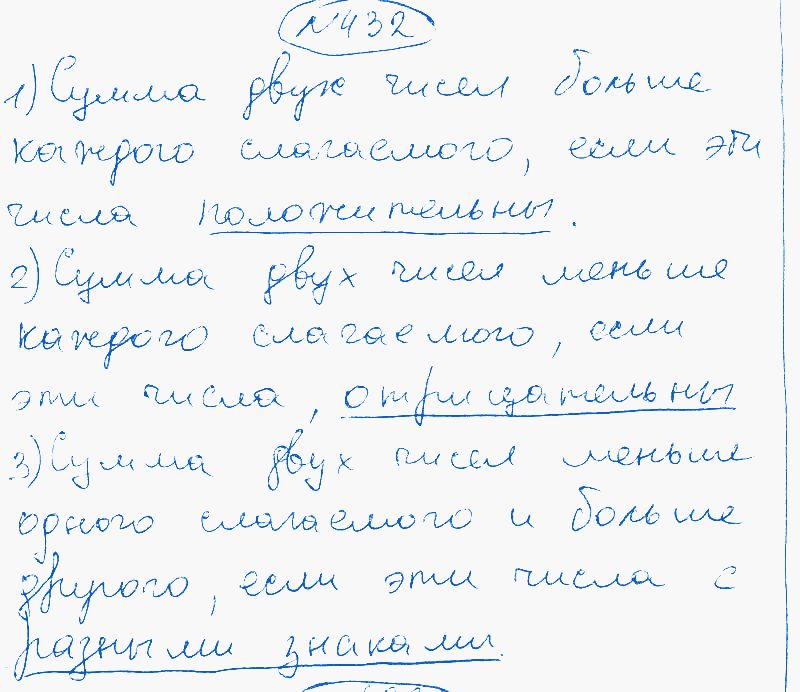 №432
1) Сумма двух чисел больше
каждого слагаемого, если эти
числа положительны.
2) Сумма двух чисел меньше
каждого слагаемого, если
эти числа, отрицательны
3) Сумма двух чисел меньше
одного слагаемого и больше
другого, если эти числа с
разными знаками.